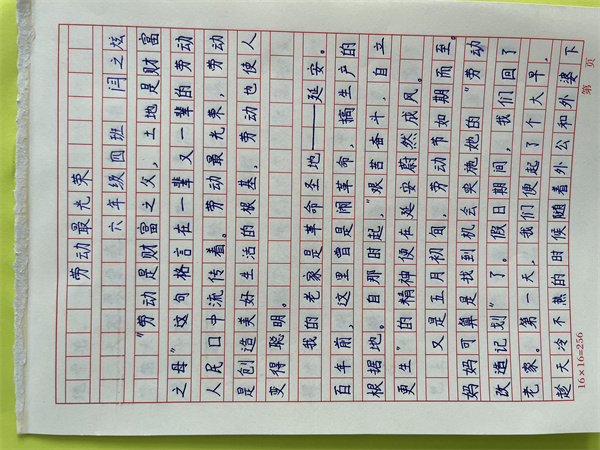 劳动最光荣
六年级四班 闫之炫
“劳动是财富之父，土地是财富
之母”这句格言在一辈又一辈的劳动
人民口中流传着。劳动最光荣，劳动
是创造美好生活的根基，劳动也使人
变得聪明。
我的老家是革命圣地——延安。
百年前，这里曾是闹革命，搞生产的
根据地。自那时起，“艰苦奋斗，自立
更生”的精神便在延安蔚然成风。
又是五月初旬，劳动节如期而至。
妈妈可算是找到机会实施她的“劳动
改造记划”了。假日期间，我们回了
老家。第一天，我们便起了个大早，
趁天冷不热的时候随着外公和外婆下
16×16=256 第 页